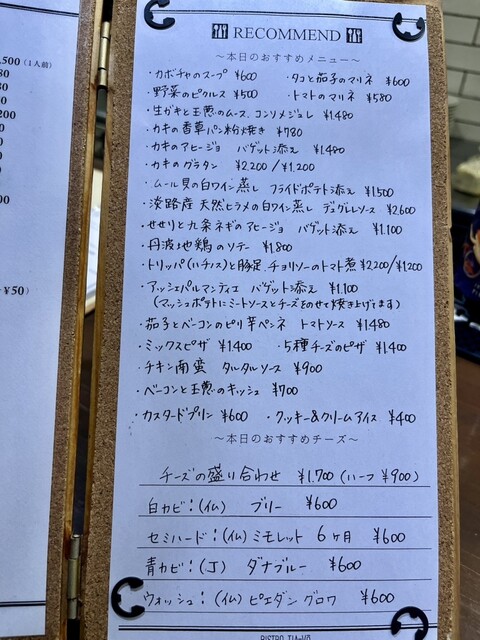 ,500(1人前)
80
80
00
200
00
00
00
+¥50)
RECOMMEND
〜本日のおすすめメニュー〜
・カボチャのスープ ¥600 ・タコと茄子のマリネ ¥600
・野菜のピクルス ¥500 ・トマトのマリネ ¥580
・生ガキと玉葱のムース、コンソメジュレ ¥1.480
・カキの香草パン粉焼き ¥780
・カキのアヒージョ バゲット添え ¥1.480
・カキのグラタン ¥2,200/¥1,200
・ムール貝の白ワイン蒸し フライドポテト添え ¥1.500
・淡路産 天然ヒラメの白ワイン蒸し デュグレレソース ¥2.600
・せせりと九条ネギのアヒージョ バゲット添え ¥1.100
・丹波地鶏のソテー ¥1.800
・トリッパ(ハチノス)と豚足、チョリソーのトマト煮 ¥2,200/¥1,200
・アッシェパルマンティエ バゲット添え ¥1.100
(マッシュポテトにミートソースとチーズをのせて焼き上げてます)
・茄子とベーコンのピリ辛ペンネ トマトソース ¥1.480
・ミックスピザ ¥1.400 ・5種チーズのピザ ¥1.400
・チキン南蛮 タルタルソース ¥900
・ベーコンと玉葱のキッシュ ¥700
・カスタードプリン ¥600 ・クッキー&クリームアイス ¥400
〜本日のおすすめチーズ〜
チーズの盛り合わせ ¥1.700(ハーフ ¥900)
白カビ:(仏) ブリー ¥600
セミハード:(仏)ミモレット 6ヶ月 ¥600
青カビ:(J) ダナブルー ¥600
ウォッシュ:(仏)ピエダングロワ ¥600